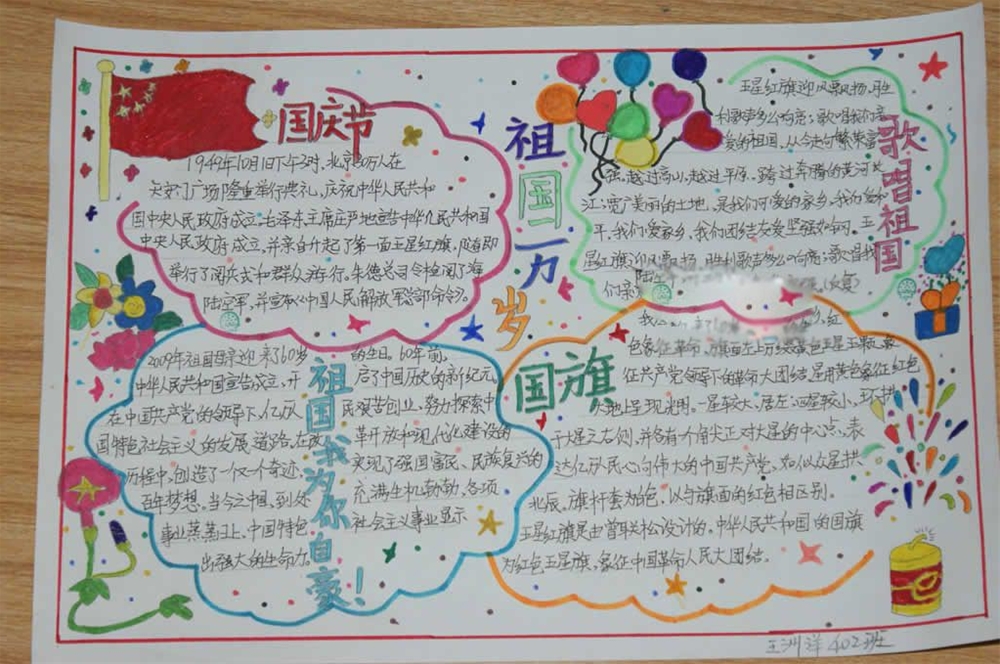 国庆节
1949年10月1日下午3时,北京30万人在
天安门广场隆重举行典礼,庆祝中华人民共和
国中央人民政府成立。毛泽东主席庄严地宣告中华人民共和国
中央人民政府成立,并亲自升起了第一面五星红旗,随即
举行了阅兵式和群众游行。朱德总司令检阅了海
陆空军,并宣布《中国人民解放军总部命令》。
祖国万岁
歌唱祖国
五星红旗迎风飘扬,胜
利歌声多么响亮;歌唱我们亲
爱的祖国,从今走向繁荣富
强。越过高山,越过平原,跨过奔腾的黄河长
江;宽广美丽的土地,是我们可爱的家乡,
平,我们爱家乡,我们团结友爱坚强如钢。五
星红旗迎风飘扬,胜利歌声多么响亮;歌唱我
们亲
2009年祖国母亲迎来了60岁的生日。60年前,
中华人民共和国宣告成立,开启了中国历史的新纪元,
在中国共产党的领导下,亿万人民艰苦创业,努力探索中
国特色社会主义的发展道路,在改革开放和现代化建设的
历程中,创造了一仅一个奇迹,实现了强国富民、民族复兴的
百年梦想。当今之中国,到处充满生机勃勃,各项
事业蒸蒸日上,中国特色社会主义事业显示
出强大的生命力。
祖国我为你自豪!
国旗
红
色象征革命,旗面左上方缀黄色五星五颗,象
征共产党领导下的革命大团结,星用黄色象征红色
大地上呈现光明。一星较大,居左,四星较小,环拱
于大星之右侧,并各有一个角尖正对大星的中心点,表
达亿万人民心向伟大的中国共产党,如似众星拱
北辰。旗杆套为白色,以与旗面的红色相区别。
五星红旗是由曾联松设计的,中华人民共和国的国旗
为红色五星旗,象征中国革命人民大团结。
王洲洋 402班